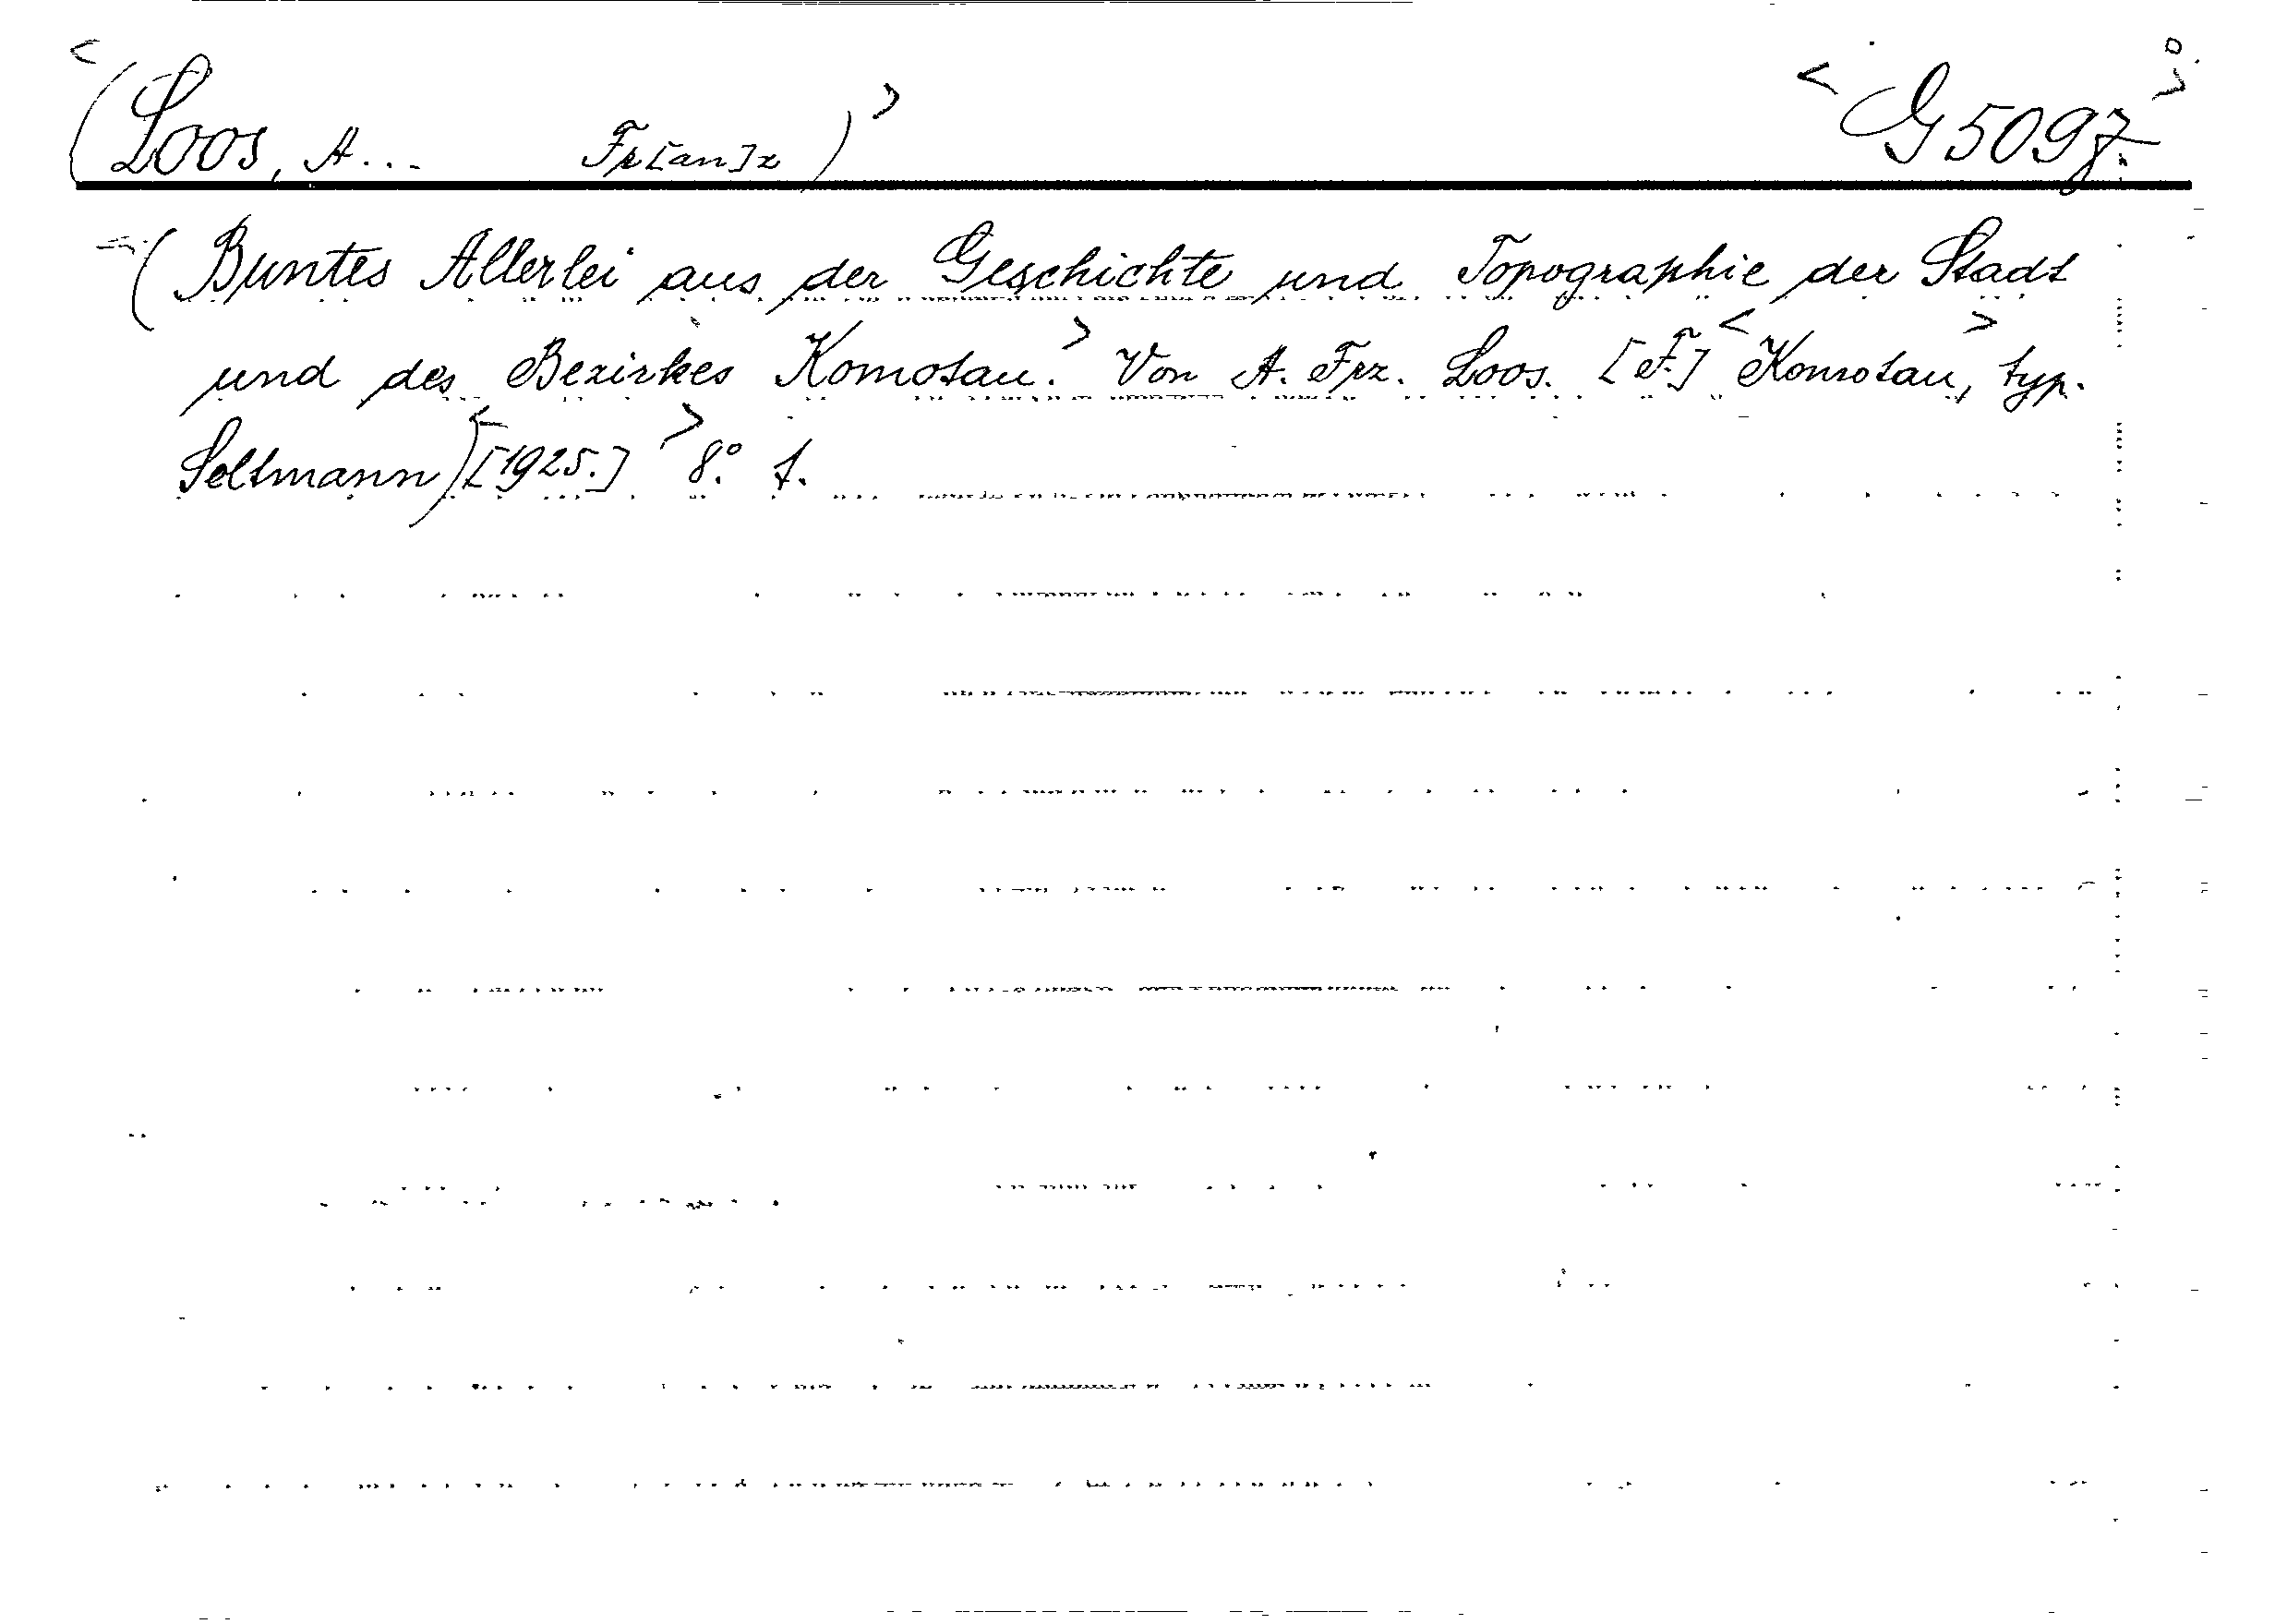 <(Loos, A... Fr[an]z)> <G 5097.>
(Buntes Allerlei aus der Geschichte und Topographie der Stadt
und des Bezirkes Komotau.> Von A. Frz. Loos. [F.] <Komotau,> typ.
Seltmann)<[1925.]> 8.° f.